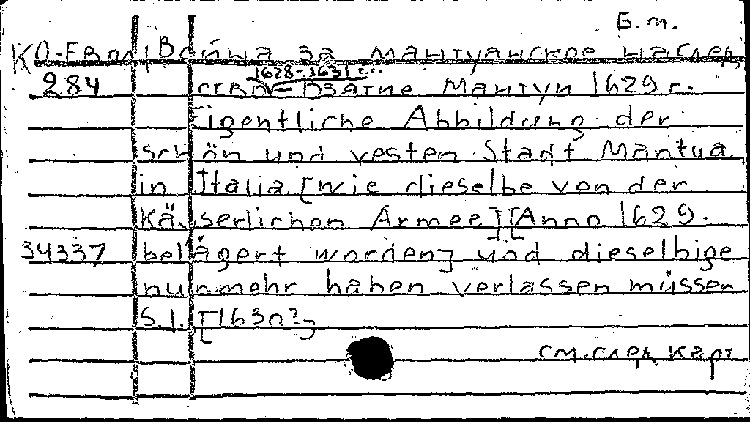 Б.м.
КО-Евол, Война за мантуанское наслед,
1628-1631г.
284 ство - Взятие Мантуи 1629 г.
Eigentliche Abbildung der
schön und vesten Stadt Mantua
in Italia [wie dieselbe von der
Käyserlichen Armee][Anno 1629.
34337 belägert worden] und dieselbige
nunmehr haben verlassen müssen
S.l. [1630?]
см. след. карт